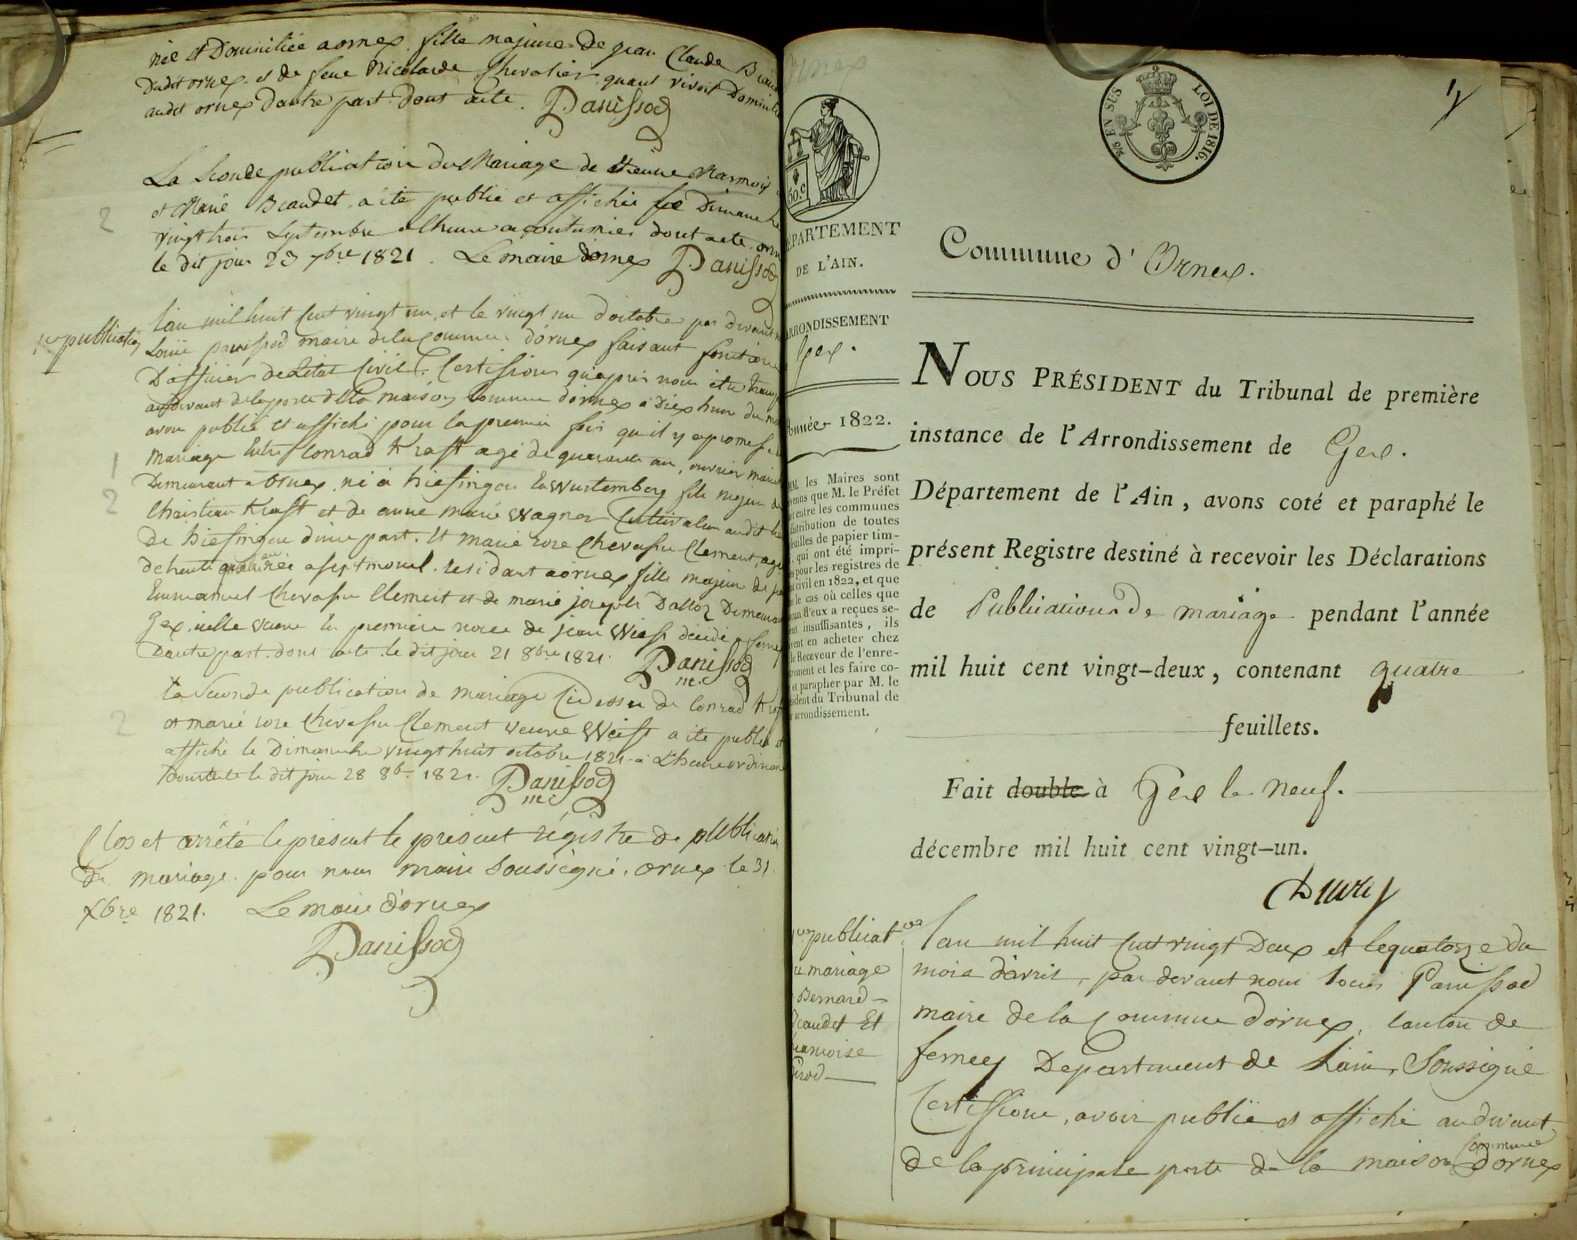 née et Domiciliée a ornex, fille majeure de jean Claude
Dudit ornex et de feue Nicolarde Chevalier quant vivoit
audit ornex dautre part. Dont acte. Panissod
La seconde publication du Mariage de
et Marie Beaudet, a été publié et affichée le Dimanche
vingt trois septembre a lheure acoutumée dont acte.
le dit jour 23 7bre 1821. Le maire dornex Panissod
1re publication
lan mil huit cent vingt un, et le vingt un doctobre par devant
Louis panissod maire de la commune dornex faisant fonction
Dofficier de Létat Civil, Certifions qu'apres nous être
audevant de la porte de la maison Commune dornex a Dix heure du
avons publié et affiché pour la premiere fois qu'il y a promesse
mariage Entre Conrad Kraft agé de quarante an, ouvrier
Demeurant a Ornex, né à hiefingen En Wurtemberg fils majeur
Christian Kraft et de anne Marie Wagner Cultivateur audit
De hiefingen d'une part. Et marie rose Chevassu Clement, agée
de trente quatre an née a septmoncel. residant a ornex, fille majeure de
Emmanuel Chevassu Clement et de marie josephe Dalloz
Gex, icelle veuve en premiere noce de jean Weist décédé a ferney
Dautre part. dont acte. le dit jour 21 8bre 1821. Panissod
me.
La seconde publication de mariage Ci dessu de Conrad
et marie rose Chevassu Clement veuve Weist a été publié
affiché le Dimanche vingt huit octobre 1821 a L'heure
Dont acte le dit jour 28 8bre 1821. Panissod
me.
Clos et arrêté le présent le présent régistre de publication
de mariage. pour nous maire soussigné. ornex le 31
Xbre 1821. Le maire d'ornex
Panissod
1
50.c
LOI DE 1816.
DÉPARTEMENT
DE L'AIN.
ARRONDISSEMENT
Gex.
Année 1822.
MM. les Maires sont
que M. le Préfet
entre les communes
distribution de toutes
feuilles de papier tim-
qui ont été impri-
pour les registres de
civil en 1822, et que
le cas où celles que
d'eux a reçues se-
insuffisantes, ils
en acheter chez
le Receveur de l'enre-
gistrement et les faire co-
et parapher par M. le
Président du Tribunal de
arrondissement.
Commune d'Ornex.
NOUS PRÉSIDENT du Tribunal de première
instance de l'Arrondissement de Gex.
Département de l'Ain, avons coté et paraphé le
présent Registre destiné à recevoir les Déclarations
de Publications de mariage pendant l'année
mil huit cent vingt-deux, contenant quatre
feuillets.
Fait double à Gex le neuf.
décembre mil huit cent vingt-un.
publicat.on
mariage
Bernard
Beaudet Et
francoise
lan mil huit cent vingt Deux et le quatorze du
mois davril, par devant nous Louis Panissod
maire de la Commune dornex, canton de
ferney Département de Lain, Soussigné
Certifions, avoir publié et affiché au devant
de la principale porte de la maison Commune dornex